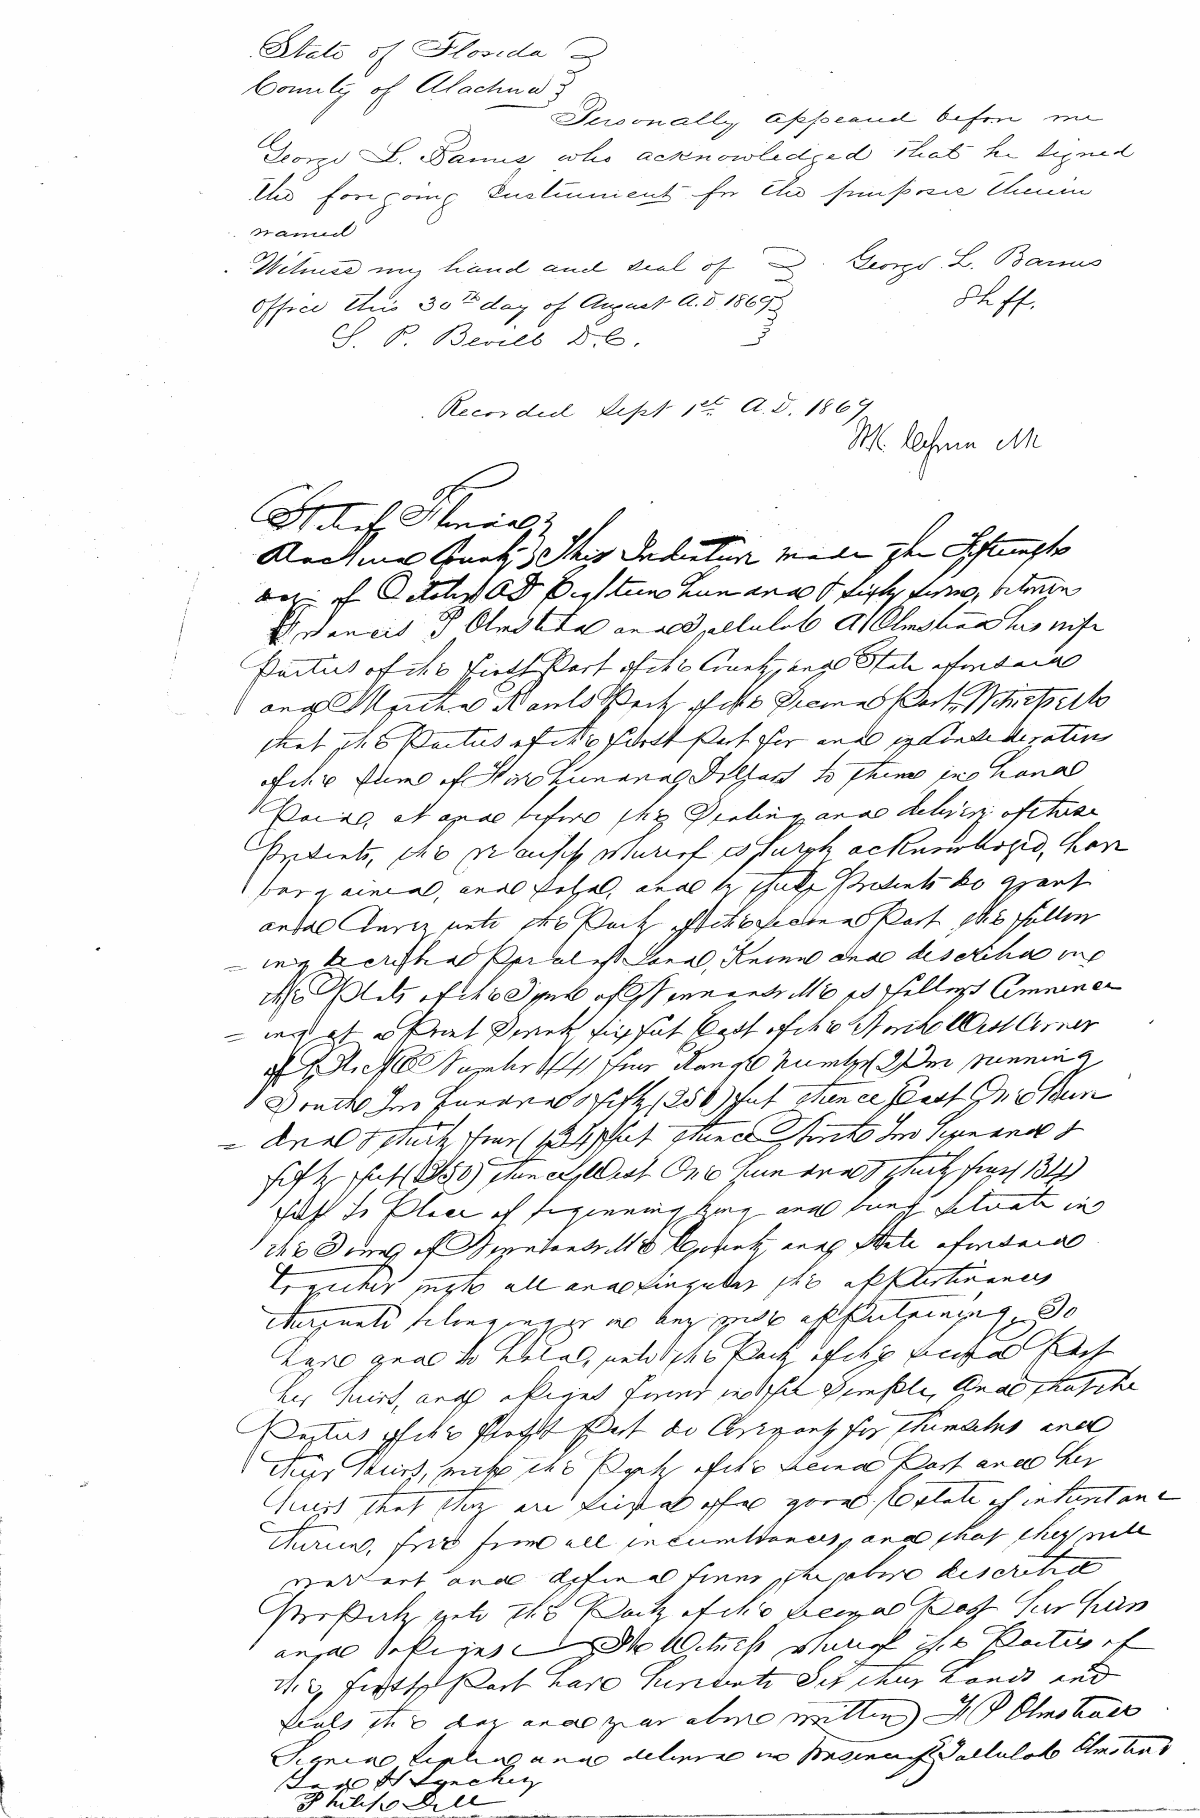 State of Florida
County of Alachua
Personally appeared before me
George L. Barnes who acknowledged that he signed
the foregoing Instrument for the purpose therein
named
Witness my hand and seal of George L. Barnes
office this 30th day of August A.D 1869 Shff.
S. P. Bevill D.C.
Recorded Sept 1st A.D. 1869
State of Florida
Alachua County This Indenture made the
day of October AD Eighteen hundred & sixty between
Francis P Olmstead and Tallulah A Olmstead his wife
Parties of the First Part of the County and State aforesaid
and Martha Rawls Party of the Second Part, Witnesseth
that the Parties of the first Part for and in Consideration
of the sum of Five hundred Dollars to them in hand
Paid, at and before the Sealing and delivery of these
Presents, the receipt whereof is hereby acknowledged, have
bargained, and sold, and by these Presents do grant
and Convey unto the Party of the second Part the follow
ing described Parcel of Land, Known and described in
the Plat of the Town of Newnansville as follows Commenc
ing at a Point Seventy six feet East of the North West Corner
of Number (4) four Range Number (2) Two running
South Two hundred & fifty (250) feet thence East One hun
dred & thirty four (134) feet thence North Two hundred &
fifty feet (250) thence West One hundred & thirty four (134)
feet to Place of beginning lying and being situate in
the Town of Newnansville County and State aforesaid
Together with all and singular the appertinances
thereunto belonging or in any wise appertaining, To
have and to hold, unto the Party of the second Part
her heirs, and assigns forever in fee Simple, And that the
Parties of the first Part do Covenant for themselves and
their heirs, with the Party of the second Part and her
heirs that they are seized of a good Estate of inheritance
therein, free from all incumbrances, and that they will
warrant and defend forever, the above described
Property unto the Party of the second Part her heirs
and assigns In Witness whereof the Parties of
the first Part have hereunto Set their hands and
seals the day and year above written F P Olmstead
Signed sealed and delivered in Presence of Tallulah Olmstead
Philip Dell